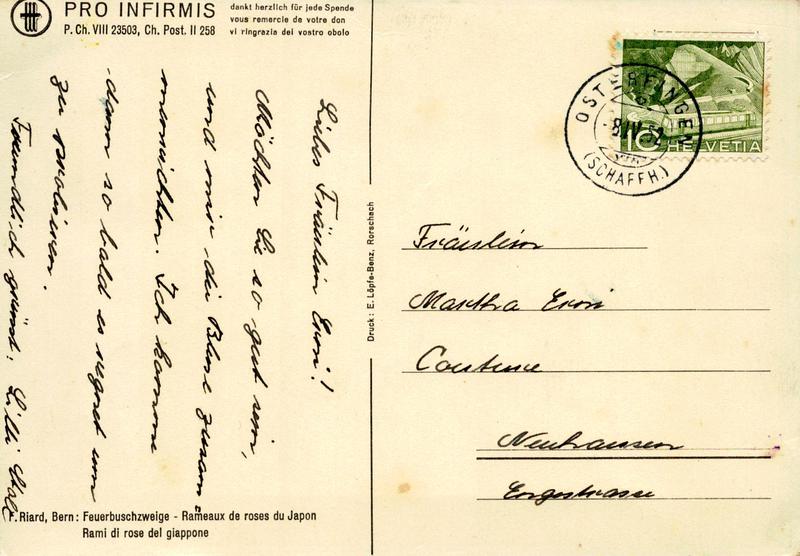 PRO INFIRMIS
P. Ch. VIII 23503, Ch. Post. II 258
dankt herzlich für jede Spende
vous remercie de votre don
vi ringrazia del vostro obolo
Liebes Fräulein Erni!
Möchten Sie so gut sein,
und mir die Bluse zusam-
menrichten. Ich komme
dann so bald es regnet um
zu probieren.
Freundlich grüsst: Lilli
F. Riard, Bern: Feuerbuschzweige - Rameaux de roses du Japon
Rami di rose del giappone
Druck: E. Löpfe-Benz, Rorschach
OSTERFINGEN
-8.IV.52
(SCHAFFH.)
10 HELVETIA
Fräulein
Martha Erni
Couture
Neuhausen
Engestrasse